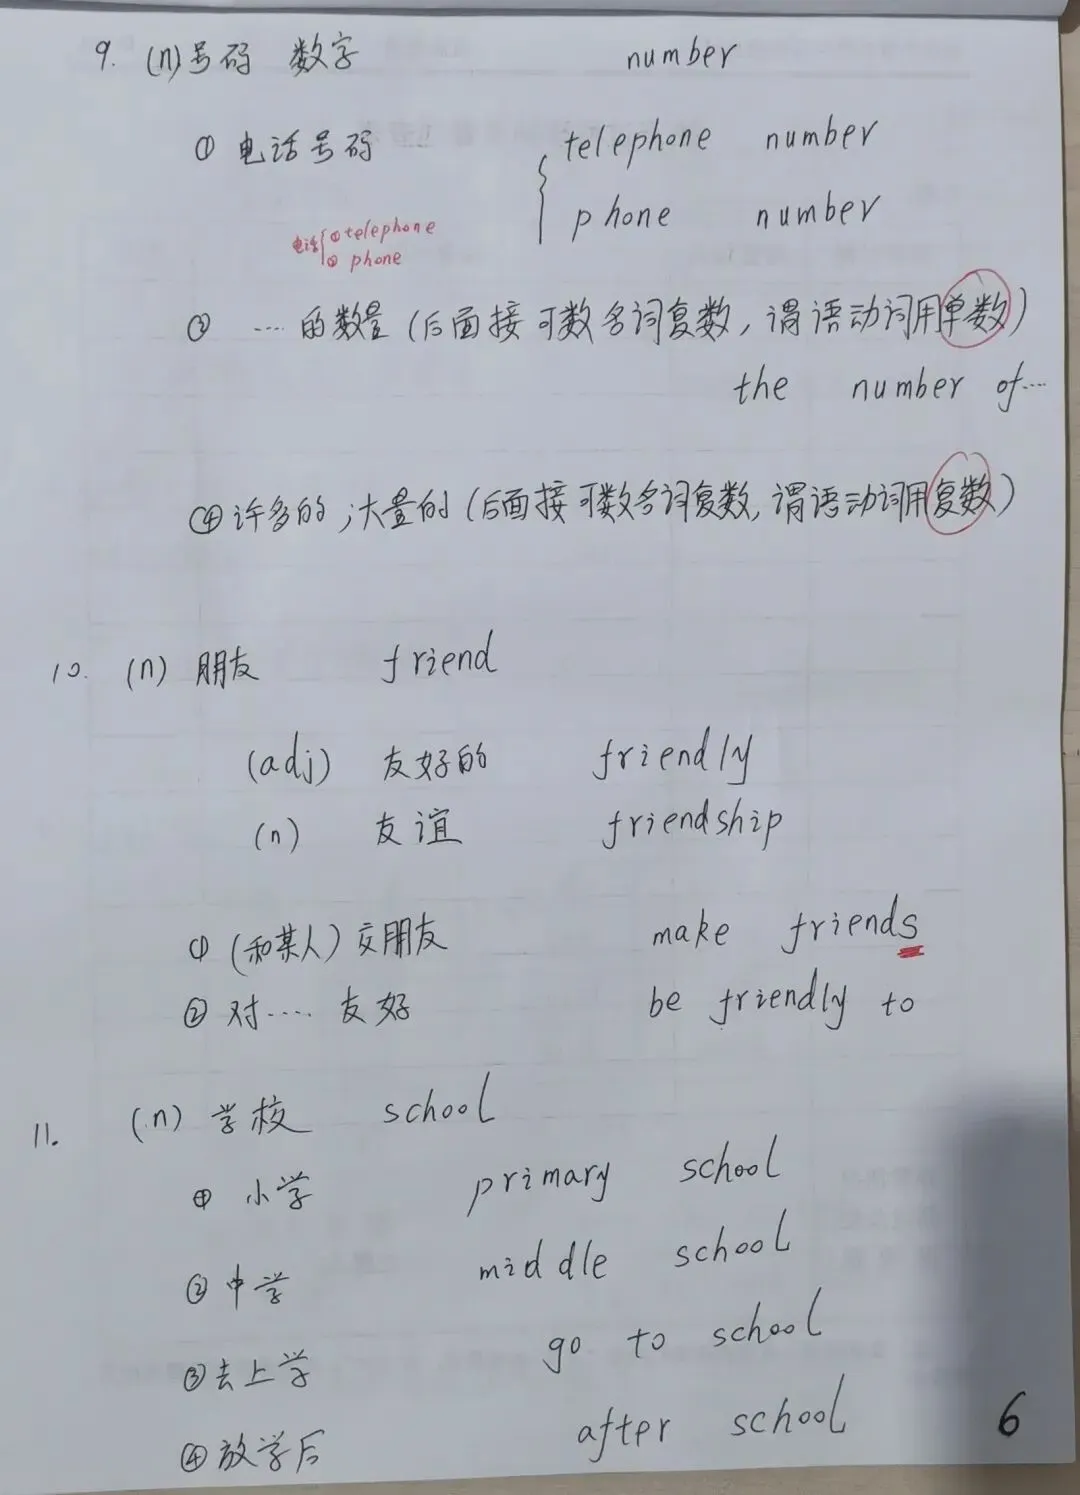 9. (n)号码 数字 number
① 电话号码 { telephone number
phone number
电话{① telephone
② phone
③ ....的数量(后面接可数名词复数,谓语动词用单数)
the number of...
④ 许多的;大量的(后面接可数名词复数,谓语动词用复数)
10. (n) 朋友 friend
(adj) 友好的 friendly
(n) 友谊 friendship
① (和某人)交朋友 make friends
② 对.... 友好 be friendly to
11. (n) 学校 school
① 小学 primary school
② 中学 middle school
③ 去上学 go to school
④ 放学后 after school
6